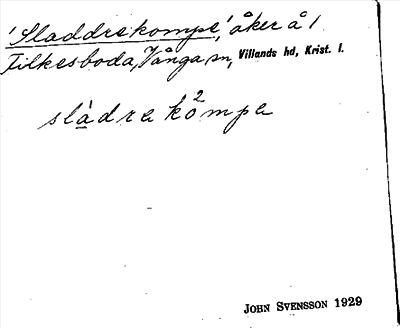 'Sladdrekompe', åker å 1
Tilkesboda, Vånga sn, Villands hd, Krist. l.
slàdreko²mpe
JOHN SVENSSON 1929